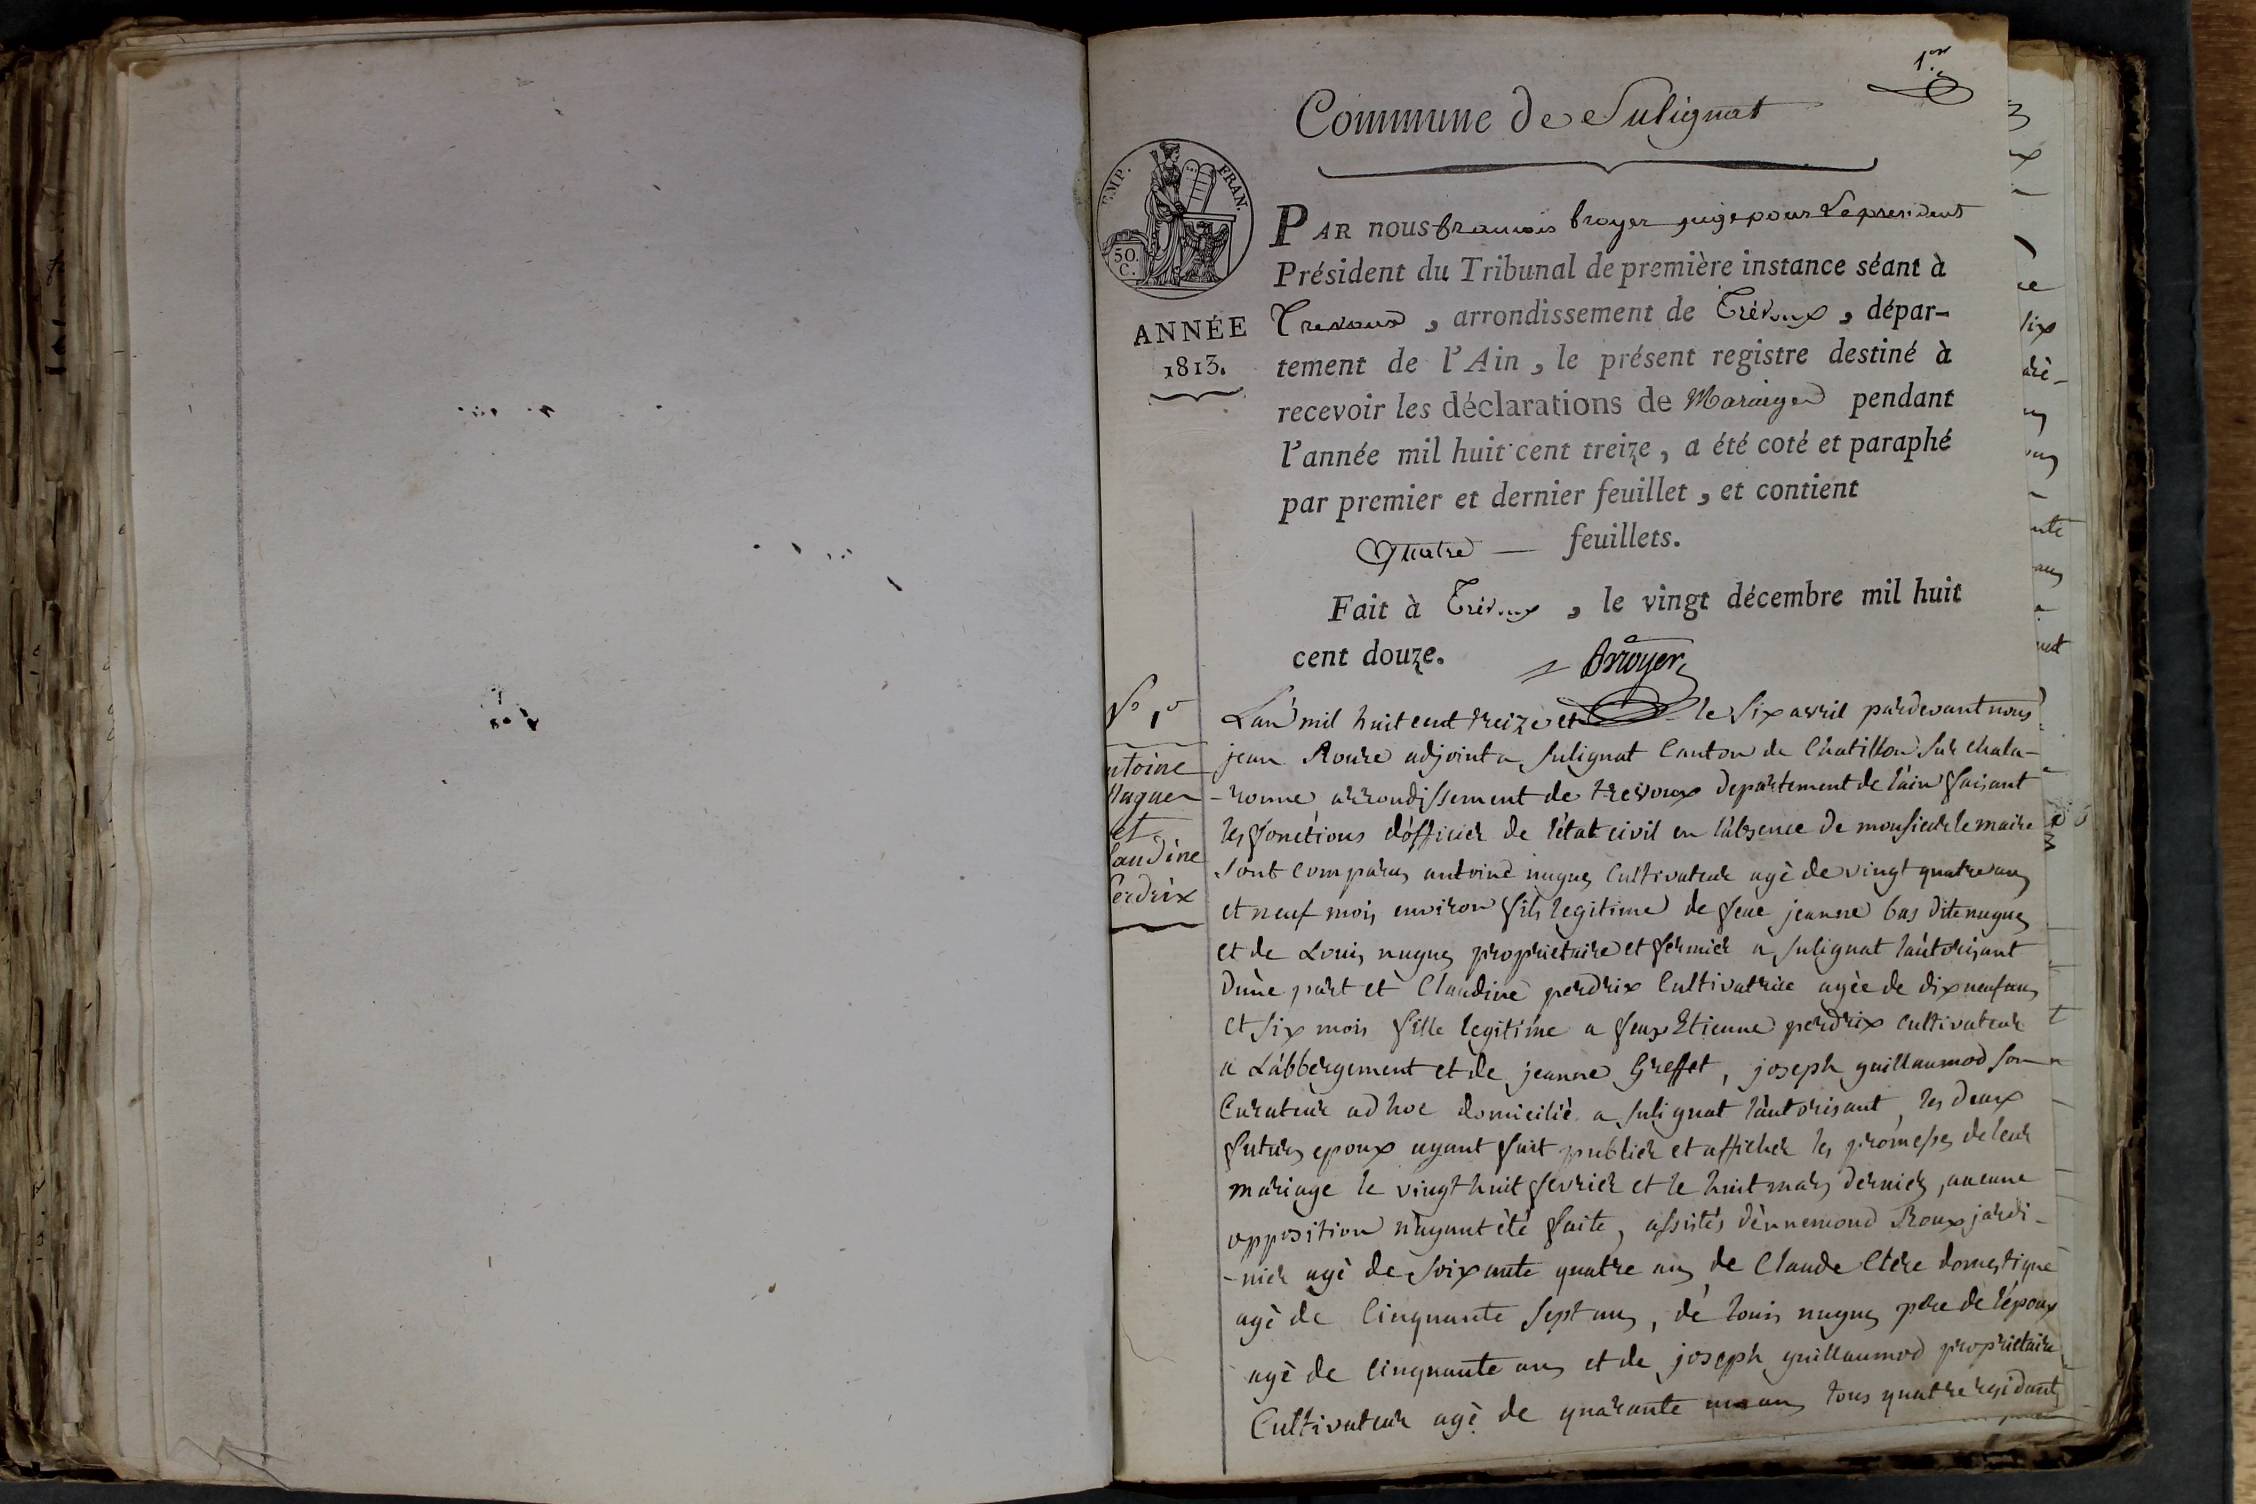 1er
Commune de Sulignat
EMP. FRAN.
50. C.
ANNÉE
1813.
PAR nous francois broyer juge pour Le president
Président du Tribunal de première instance séant à
Trevoux, arrondissement de Trévoux, dépar-
tement de l'Ain, le présent registre destiné à
recevoir les déclarations de Mariage pendant
l'année mil huit cent treize, a été coté et paraphé
par premier et dernier feuillet, et contient
Quatre — feuillets.
Fait à Trévoux, le vingt décembre mil huit
cent douze.
Broyer
No 1er
ntoine
Nugues
et
laudine
Perdrix
L'an mil huit cent treize et le six avril pardevant nous
jean Roure adjoint a Sulignat Canton de Chatillon sur chala-
-ronne arrondissement de trevoux departement de l'ain faisant
les fonctions d'officier de l'état civil en l'absence de monsieur le maire
sont comparus antoine nugues Cultivateur agé de vingt quatre ans
et neuf mois environ fils legitime de feue jeanne bas dite nugues
et de Louis nugues proprietaire et fermier a sulignat l'autorisant
d'une part et Claudine perdrix Cultivatrice agée de dix neuf ans
et six mois fille legitime a feux Etienne perdrix cultivateur
a L'abbergement et de jeanne Greffet, joseph guillaumod son
Curateur ad hoc domicilié a sulignat l'autorisant, les deux
futurs epoux ayant fait publier et afficher les promesses de leur
mariage le vingt huit fevrier et le huit mars dernier, aucune
opposition n'ayant été faite, assistés d'ennemond Roux jardi-
-nier agé de soixante quatre ans de Claude Clère domestique
agé de Cinquante sept ans, de louis nugues père de l'époux
agé de cinquante ans et de joseph guillaumod proprietaire
Cultivateur agé de quarante ans tous quatre residants